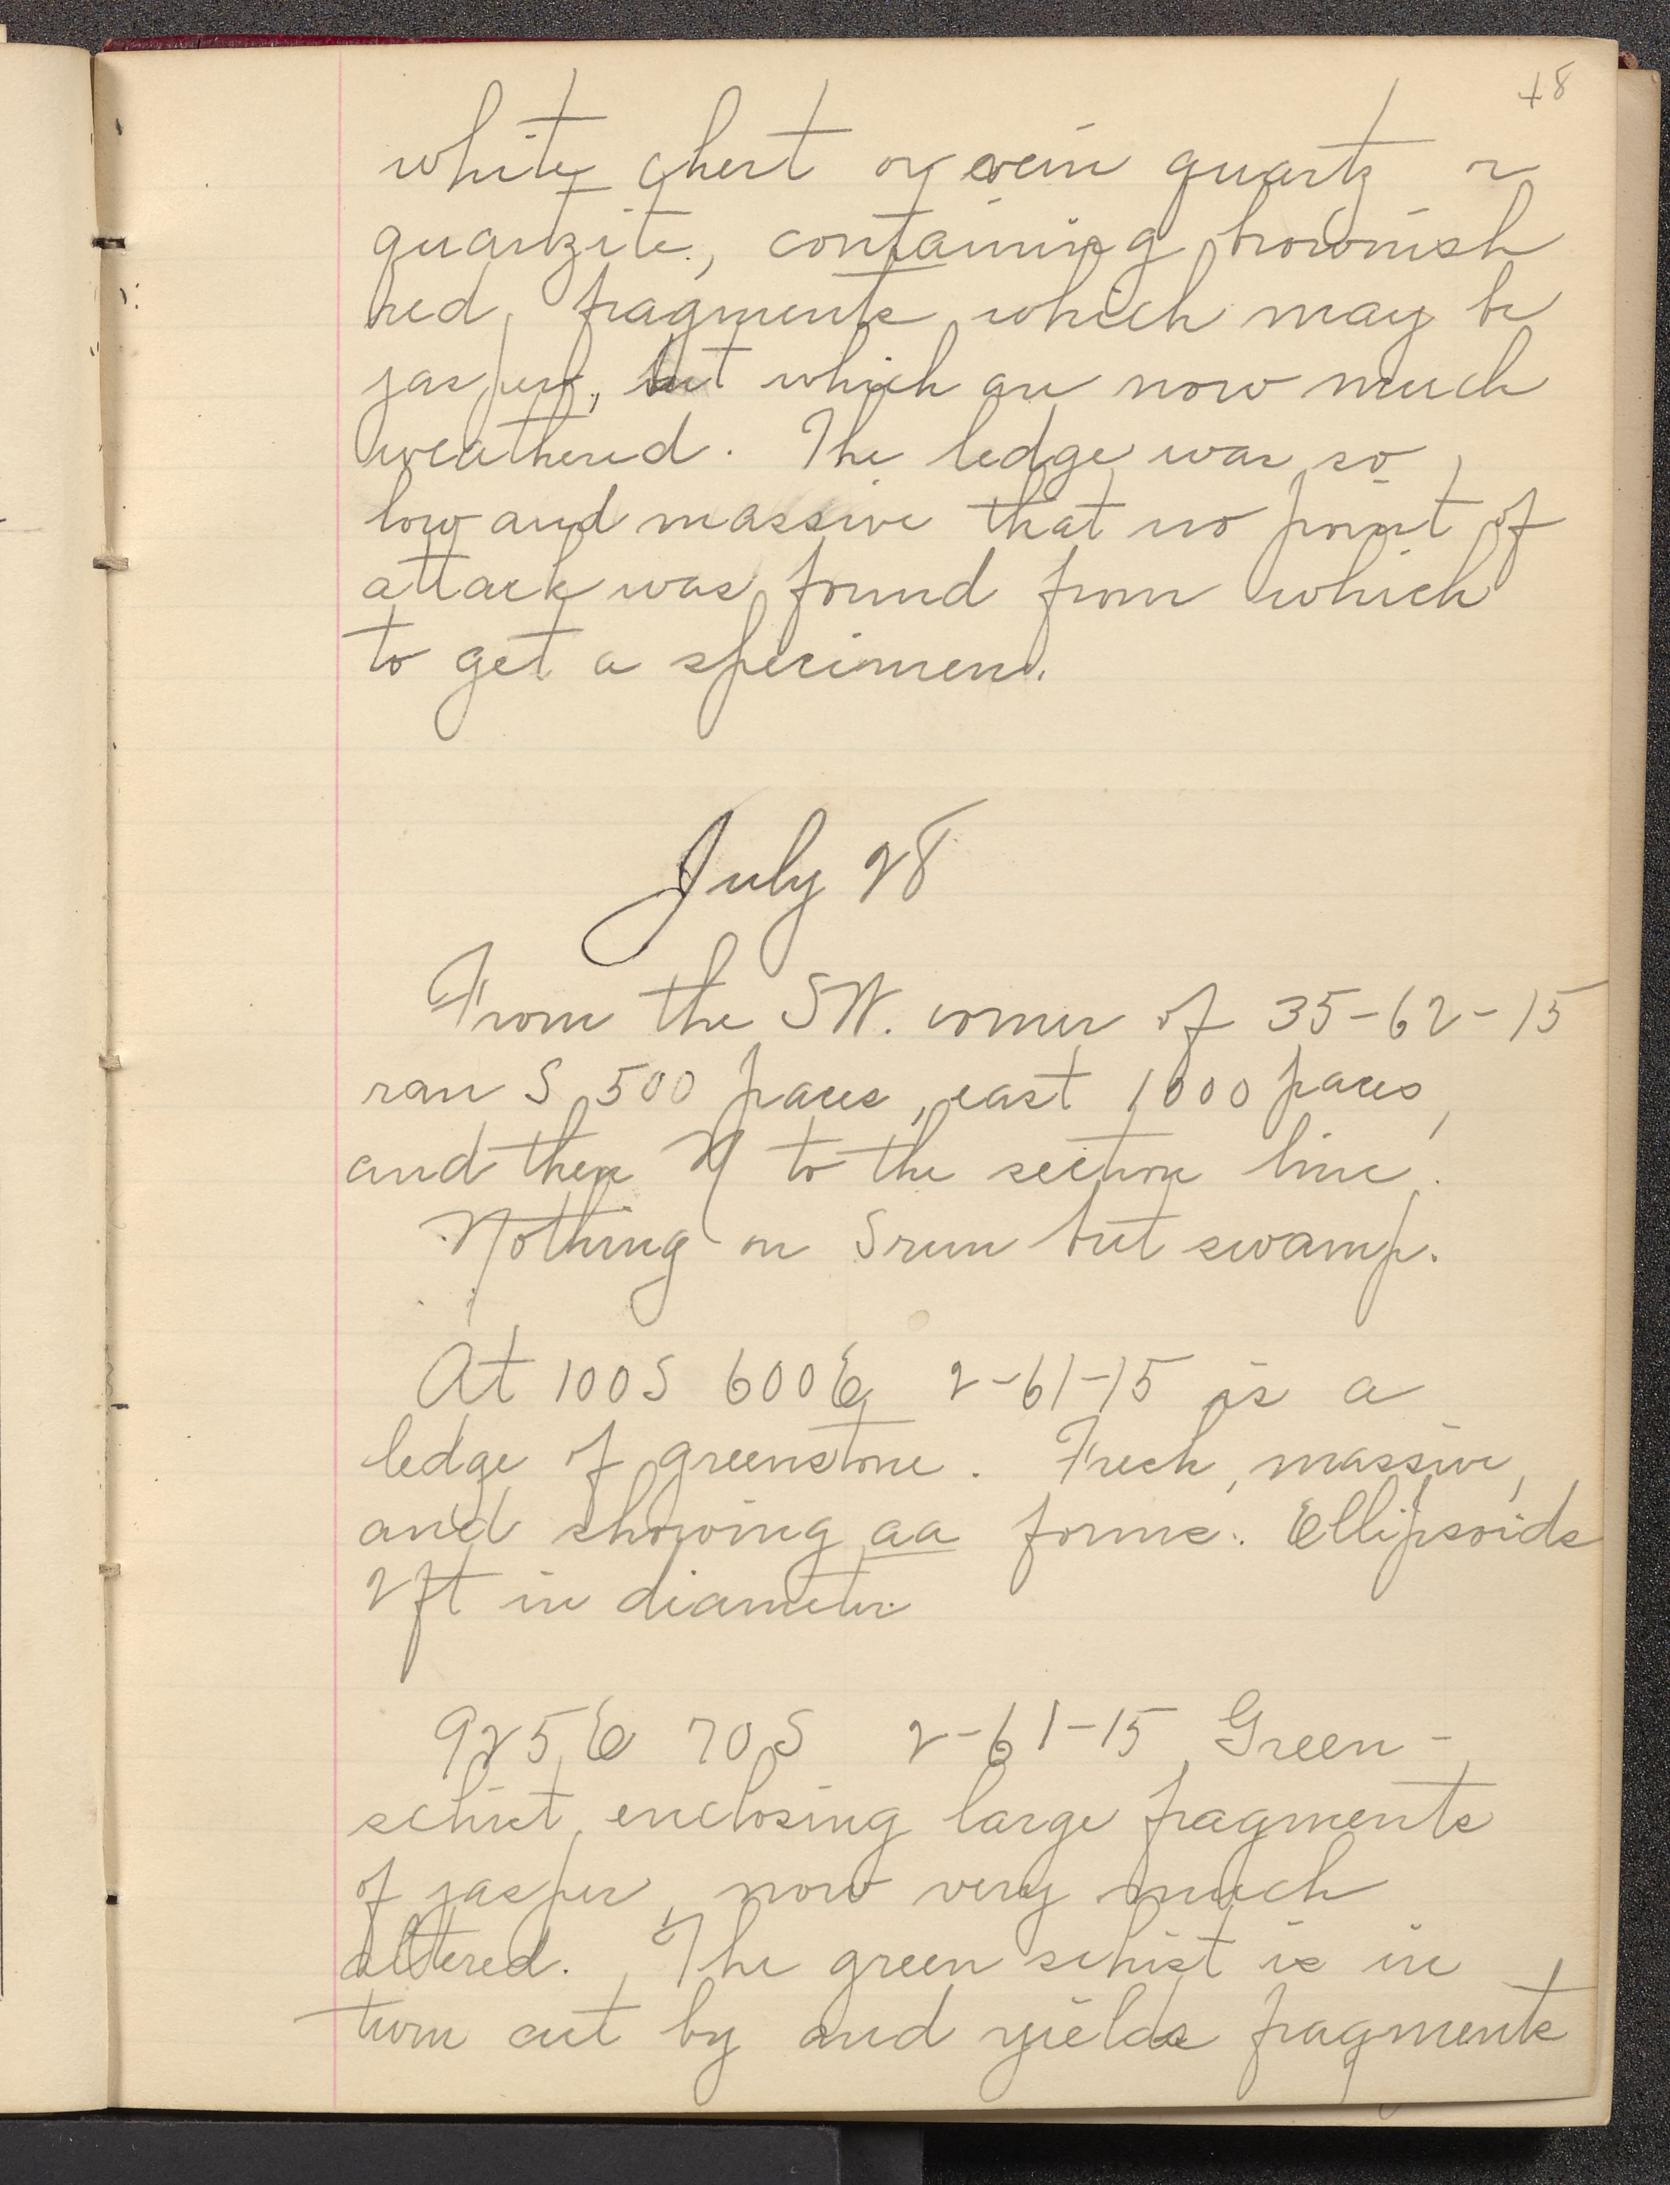 48
white chert or vein quartz or
quartzite, containing brownish
red fragments which may be
jasper, but which are now much
weathered. The ledge was so
low and massive that no point of
attack was found from which
to get a specimen.
July 28
From the SW. corner of 35-62-15
ran S 500 paces, east 1000 paces,
and then N to the section line.
Nothing on S run but swamp.
At 100S 600E 2-61-15 is a
ledge of greenstone. Fresh, massive,
and showing aa forms. Ellipsoids
2 ft in diameter
925E 70S 2-61-15 Green-
schist enclosing large fragments
of jasper, now very much
altered. The green schist is in
turn cut by and yields fragments